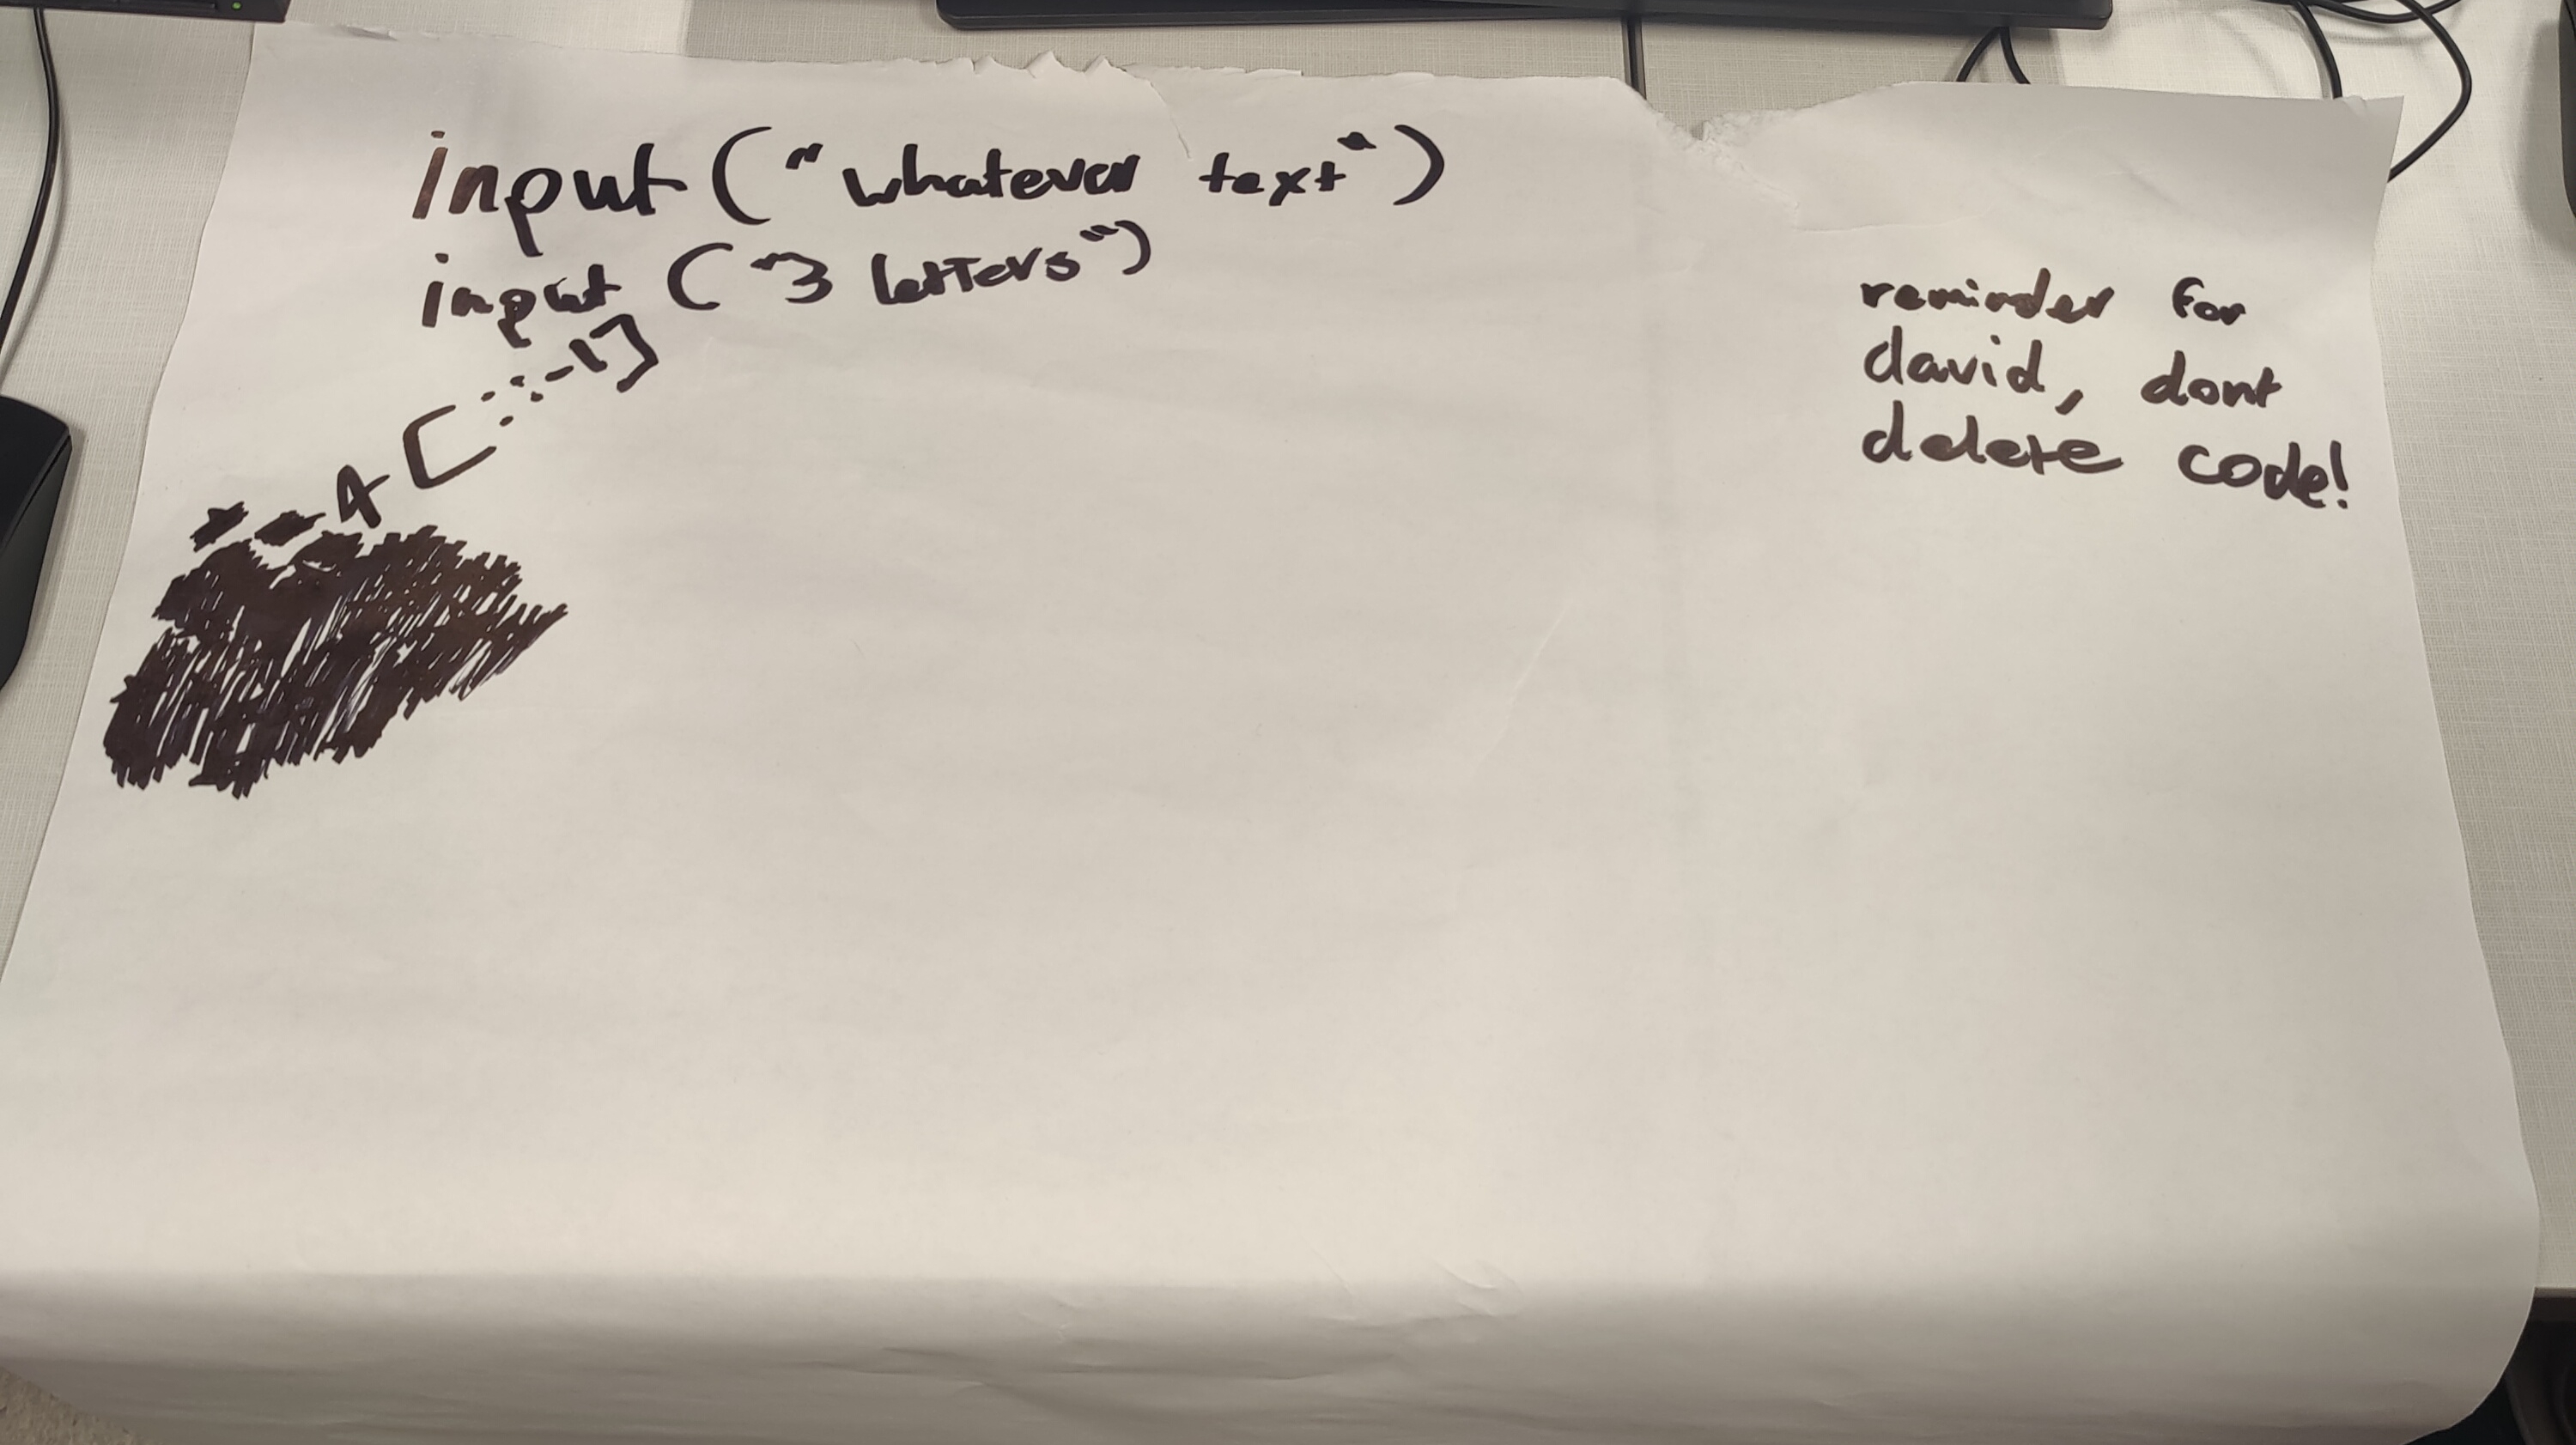 input ("whatever text")
input ("3 letters")
A [::-1]
reminder for
david, dont
delete code!